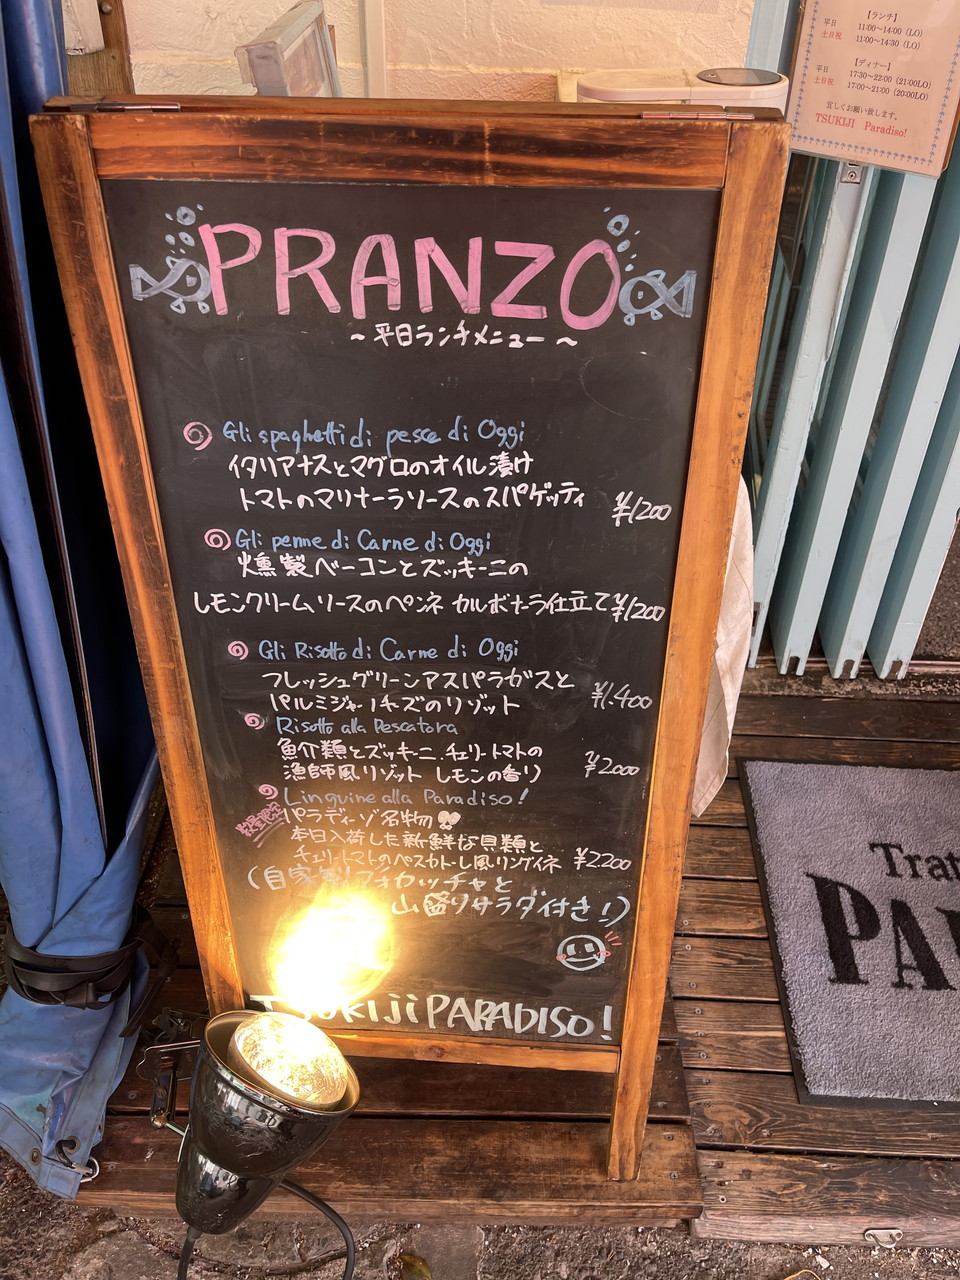 【ランチ】
平日 11:00〜14:00 (LO)
土日祝 11:00〜14:30 (LO)
【ディナー】
平日 17:30〜22:00 (21:00LO)
土日祝 17:00〜21:00 (20:00LO)
宜しくお願い致します。
TSUKIJI Paradiso!
PRANZO
〜平日ランチメニュー〜
Gli spaghetti di pesce di Oggi
イタリアナスとマグロのオイル漬け
トマトのマリナーラソースのスパゲッティ ¥1200
Gli penne di Carne di Oggi
燻製ベーコンとズッキーニの
レモンクリームソースのペンネ カルボナーラ仕立て ¥1200
Gli Risotto di Carne di Oggi
フレッシュグリーンアスパラガスと
パルミジャーノチーズのリゾット ¥1.400
Risotto alla Pescatora
魚介類とズッキーニ、チェリートマトの
漁師風リゾット レモンの香り ¥2000
Linguine alla Paradiso!
数量限定 パラディーゾ名物!!
本日入荷した新鮮な貝類と
チェリートマトのペスカトーレ風リングイネ ¥2200
(自家製フォカッチャと
山盛りサラダ付き!)
TSUKIJI PARADISO!
Trat
PA